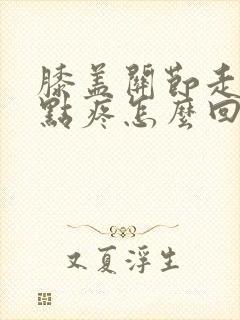 膝盖關節走
點疼怎麼回
又夏浮生